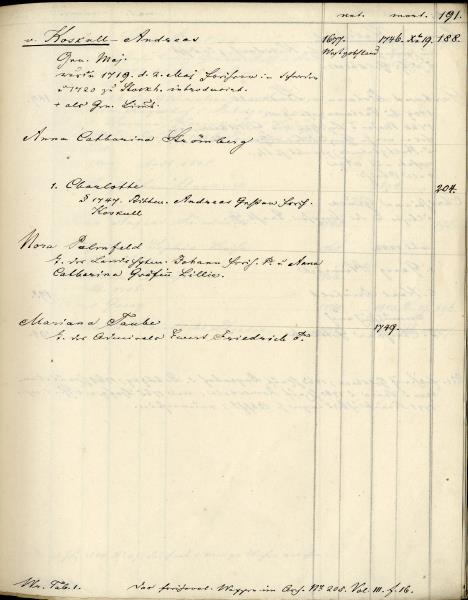 nat. mort. 191.
v. Koskull Andreas 1677. 1746. Xbr 19. 188.
Gen. Maj. Westgothland
wurde 1719. d. 2. Maj Freiherr in Schweden
u 1720 zu Stockh. introducirt.
+ als Gen. Lieut.
Anna Catharina Strömberg
1. Charlotte 204.
§ 1747. Rittm. Andreas Gustav Freih.
Koskull
Nora Palmfeld
T. des Landshptm. Johann Freih. P. u Anna
Catharina Gräfin Lillie.
Mariana Taube 1749.
T. des Admirals Ewert Friedrich T.
Wr. Tab. 1. Das freiherrl. Wappen im Arch. No 205. Vol. III. f. 16.